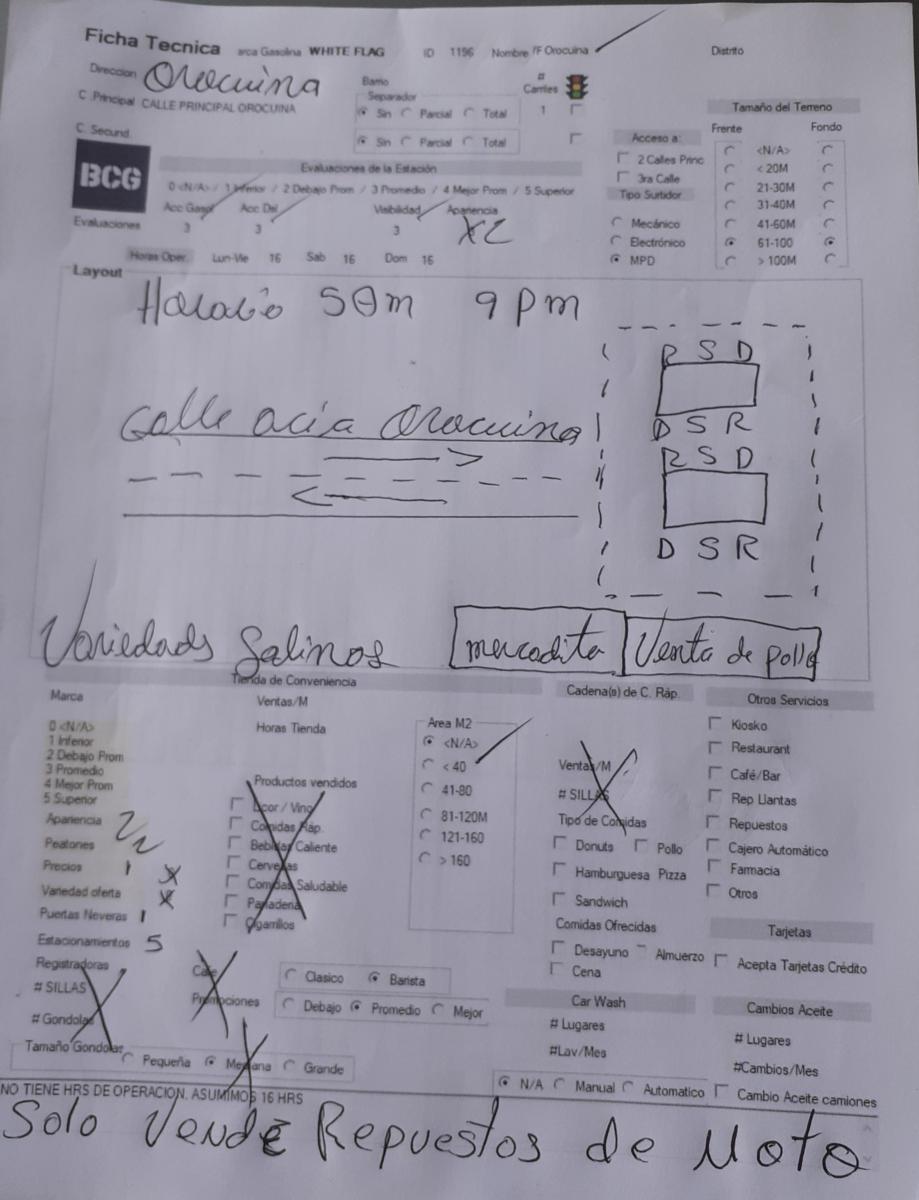 Ficha Tecnica arca Gasolina WHITE FLAG ID 1196 Nombre /F Orocuina Distrito
Direccion Orocuina Barrio # Carriles
C .Principal CALLE PRINCIPAL OROCUINA Separador
Sin Parcial Total 1
Tamaño del Terreno
C. Secund. Sin Parcial Total
Acceso a: Frente Fondo
BCG
2 Calles Princ <N/A>
Evaluaciones de la Estación
3ra Calle < 20M
0 <N/A> / 1 Inferior / 2 Debajo Prom / 3 Promedio / 4 Mejor Prom / 5 Superior
Tipo Surtidor 21-30M
Acc Gasol Acc Del Visibilidad Apariencia
31-40M
Evaluaciones 3 3 3 X2
Mecánico 41-60M
Electrónico 61-100
Horas Oper. Lun-Vie 16 Sab 16 Dom 16
MPD > 100M
Layout
Horario 5am 9pm
R S D
Calle acia Orocuina
D S R
R S D
D S R
Variedads Salinas mercadita Venta de pollo
Tienda de Conveniencia
Marca Ventas/M Cadena(s) de C. Ráp. Otros Servicios
0 <N/A> Horas Tienda Area M2 Kiosko
1 Inferior <N/A>
2 Debajo Prom < 40 Ventas/M Restaurant
3 Promedio
4 Mejor Prom Productos vendidos 41-80 # SILLAS Café/Bar
5 Superior Licor / Vino 81-120M Tipo de Comidas Rep Llantas
Apariencia 2 Comidas Ráp. 121-160 Donuts Pollo Repuestos
Peatones 2 Bebidas Caliente > 160 Cajero Automático
Precios 1 x Cervezas Hamburguesa Pizza Farmacia
Variedad oferta x Comidas Saludable Sandwich Otros
Puertas Neveras 1 Panaderia
Cigarrillos Comidas Ofrecidas Tarjetas
Estacionamientos 5 Desayuno Almuerzo Acepta Tarjetas Crédito
Registradoras Cafe Clasico Barista Cena
# SILLAS Promociones Debajo Promedio Mejor Car Wash Cambios Aceite
# Gondolas # Lugares # Lugares
Tamaño Gondolas Pequeña Mediana Grande #Lav/Mes #Cambios/Mes
N/A Manual Automatico Cambio Aceite camiones
NO TIENE HRS DE OPERACION. ASUMIMOS 16 HRS
Solo Vende Repuestos de Moto